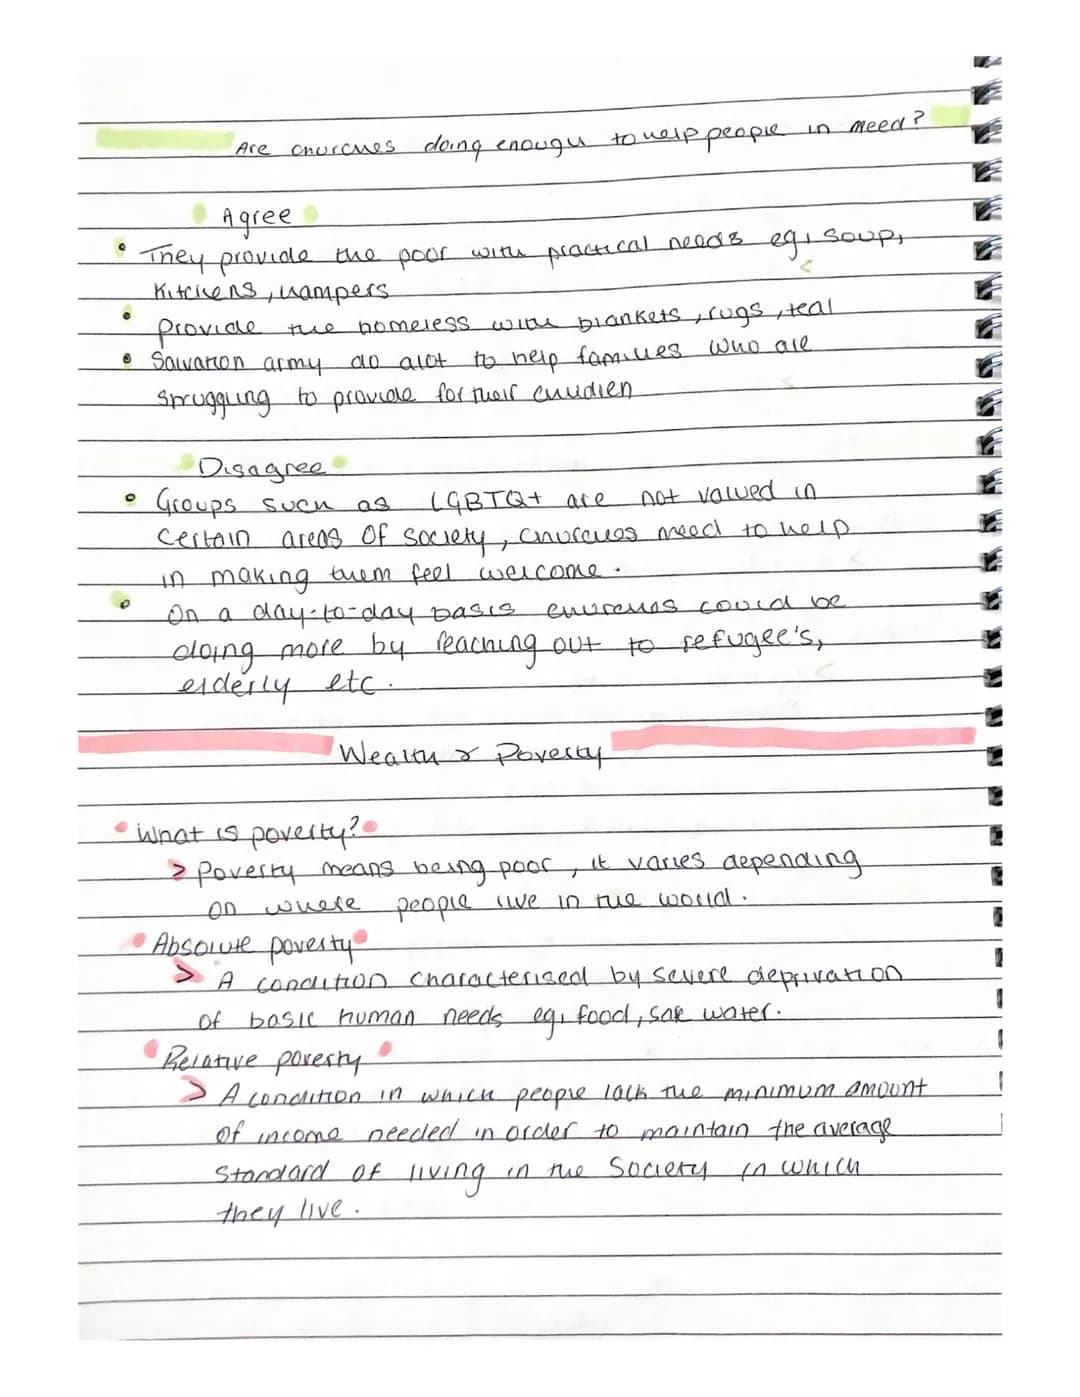 Are churches doing enough to help people in need?
Agree
They provide the poor with practical needs eg, soup,
kitchens, hampers
Provide the homeless with blankets, rugs, tea
Salvation army do alot to help families who are
struggling to provide for their children
Disagree
Groups such as LGBTQ+ are not valued in
certain areas of society, churches need to help
in making them feel welcome.
On a day-to-day basis churches could be
doing more by reaching out to refugee's,
elderly etc.
Wealth & Poverty
What is poverty?
> Poverty means being poor, it varies depending
on where people live in the world.
Absolute poverty
> A condition characterised by severe deprivation
of basic human needs eg, food, safe water.
Relative poverty
> A condition in which people lack the minimum amount
of income needed in order to maintain the average
standard of living in the society in which
they live.